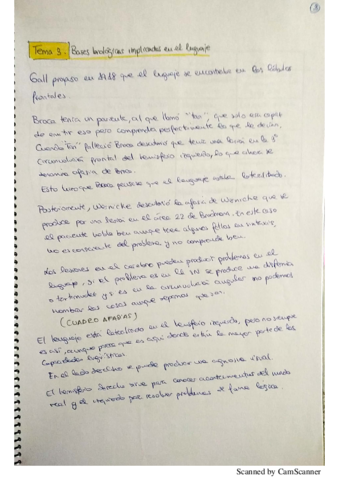 Tema 3. Bases biológicas implicadas en el lenguaje
Gall propuso en 1818 que el lenguaje se encontraba en los lóbulos
frontales.
Broca tenía un paciente, al que llamó "tan", que solo era capaz
de emitir eso pero comprendía perfectamente lo que le decían.
Cuando "tan" falleció Broca descubrió que tenía una lesión en la 3ª
circunvolución frontal del hemisferio izquierdo, lo que ahora se
denomina afasia de Broca.
Esto hizo que Broca pensase que el lenguaje estaba lateralizado.
Posteriormente, Wernicke descubrió la afasia de Wernicke que se
produce por una lesión en el área 22 de Brodmann. En este caso
el paciente habla bien aunque tiene algunos fallos en sintaxis,
no es consciente del problema, y no comprende bien.
Las lesiones en el cerebro pueden producir problemas en el
lenguaje, si el problema es en la se produce una disfemia
o tartamudez y si es en la circunvolución angular no podemos
nombrar las cosas aunque sepamos que son.
(CUADRO AFASIAS)
El lenguaje está lateralizado en el hemisferio izquierdo, pero no siempre
es así, aunque parece que es aquí donde están la mayor parte de las
capacidades lingüísticas.
En el lado derecho se puede producir una agnosia visual.
El hemisferio derecho sirve para conocer acontecimientos del mundo
real y el izquierdo para resolver problemas de forma lógica.
Scanned by CamScanner